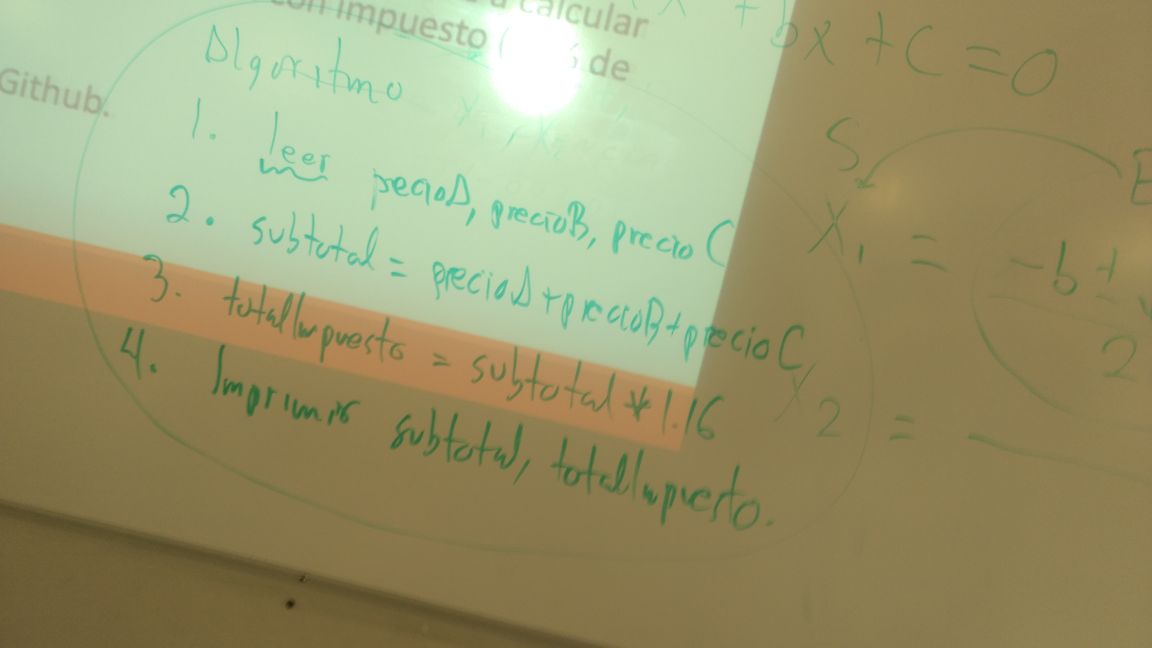 calcular
con impuesto
de
Github.
Algoritmo
1. leer precioA, precioB, precioC
2. subtotal = precioA+precioB+precioC
3. totalImpuesto = subtotal * 1.16
4. Imprimir subtotal, totalImpuesto.
+ bx + c = 0
S
X1 = -b ±
2
X2 =